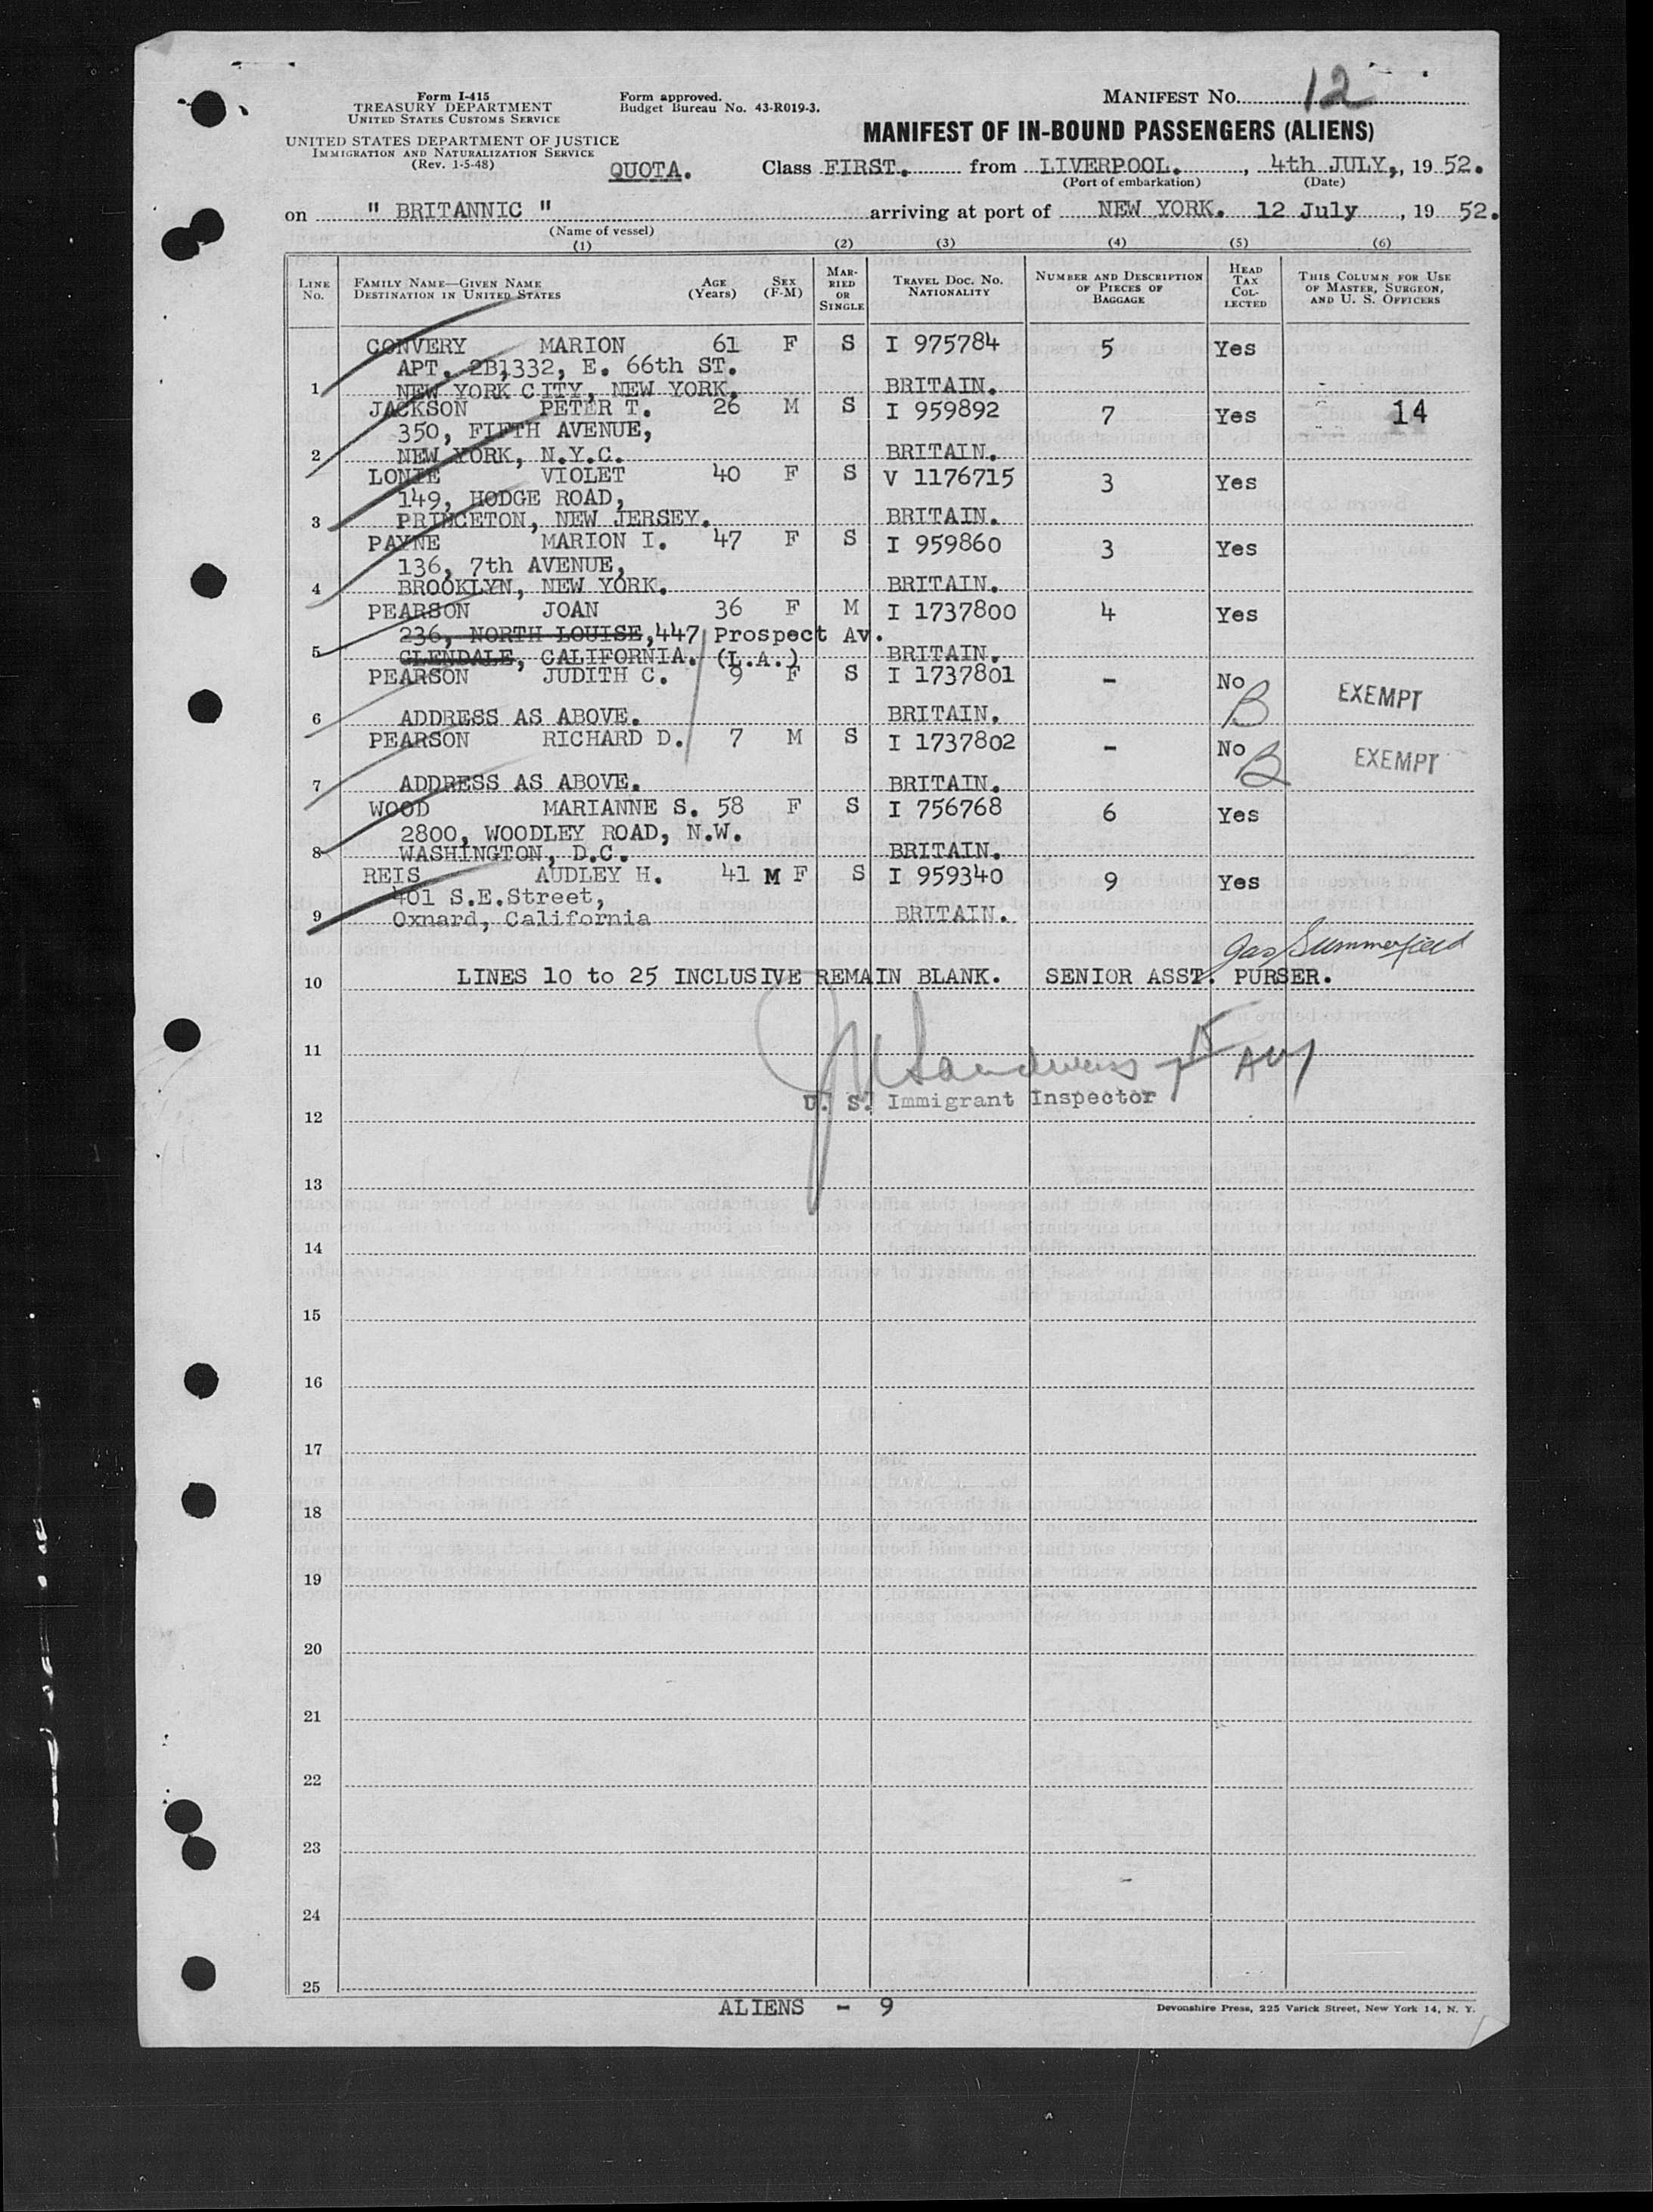 Form I-415
TREASURY DEPARTMENT
UNITED STATES CUSTOMS SERVICE
UNITED STATES DEPARTMENT OF JUSTICE
IMMIGRATION AND NATURALIZATION SERVICE
(Rev. 1-5-48)
Form approved.
Budget Bureau No. 43-R019-3.
MANIFEST No. 12
MANIFEST OF IN-BOUND PASSENGERS (ALIENS)
QUOTA. Class FIRST. from LIVERPOOL. , 4th JULY, , 19 52.
(Port of embarkation) (Date)
on " BRITANNIC " arriving at port of NEW YORK. 12 July , 19 52.
(Name of vessel)
(1) (2) (3) (4) (5) (6)
LINE No. FAMILY NAME—GIVEN NAME DESTINATION IN UNITED STATES AGE (Years) SEX (F-M) MARRIED OR SINGLE TRAVEL DOC. No. NATIONALITY NUMBER AND DESCRIPTION OF PIECES OF BAGGAGE HEAD TAX COLLECTED THIS COLUMN FOR USE OF MASTER, SURGEON, AND U. S. OFFICERS
CONVERY MARION 61 F S I 975784 5 Yes
APT. 2B1332, E. 66th ST.
1 NEW YORK CITY, NEW YORK. BRITAIN.
JACKSON PETER T. 26 M S I 959892 7 Yes 14
350, FIFTH AVENUE,
2 NEW YORK, N.Y.C. BRITAIN.
LONIE VIOLET 40 F S V 1176715 3 Yes
149, HODGE ROAD,
3 PRINCETON, NEW JERSEY. BRITAIN.
PAYNE MARION I. 47 F S I 959860 3 Yes
136, 7th AVENUE,
4 BROOKLYN, NEW YORK. BRITAIN.
PEARSON JOAN 36 F M I 1737800 4 Yes
236, NORTH LOUISE, 447 Prospect Av.
5 GLENDALE, CALIFORNIA. (L.A.) BRITAIN.
PEARSON JUDITH C. 9 F S I 1737801 - No B EXEMPT
6 ADDRESS AS ABOVE. BRITAIN.
PEARSON RICHARD D. 7 M S I 1737802 - No B EXEMPT
7 ADDRESS AS ABOVE. BRITAIN.
WOOD MARIANNE S. 58 F S I 756768 6 Yes
2800, WOODLEY ROAD, N.W.
8 WASHINGTON, D.C. BRITAIN.
REIS AUDLEY H. 41 M F S I 959340 9 Yes
401 S.E.Street,
9 Oxnard, California BRITAIN.
Jas Summerfield
10 LINES 10 to 25 INCLUSIVE REMAIN BLANK. SENIOR ASST. PURSER.
11
U. S. Immigrant Inspector
12
13
14
15
16
17
18
19
20
21
22
23
24
25
ALIENS - 9
Devonshire Press, 225 Varick Street, New York 14, N. Y.